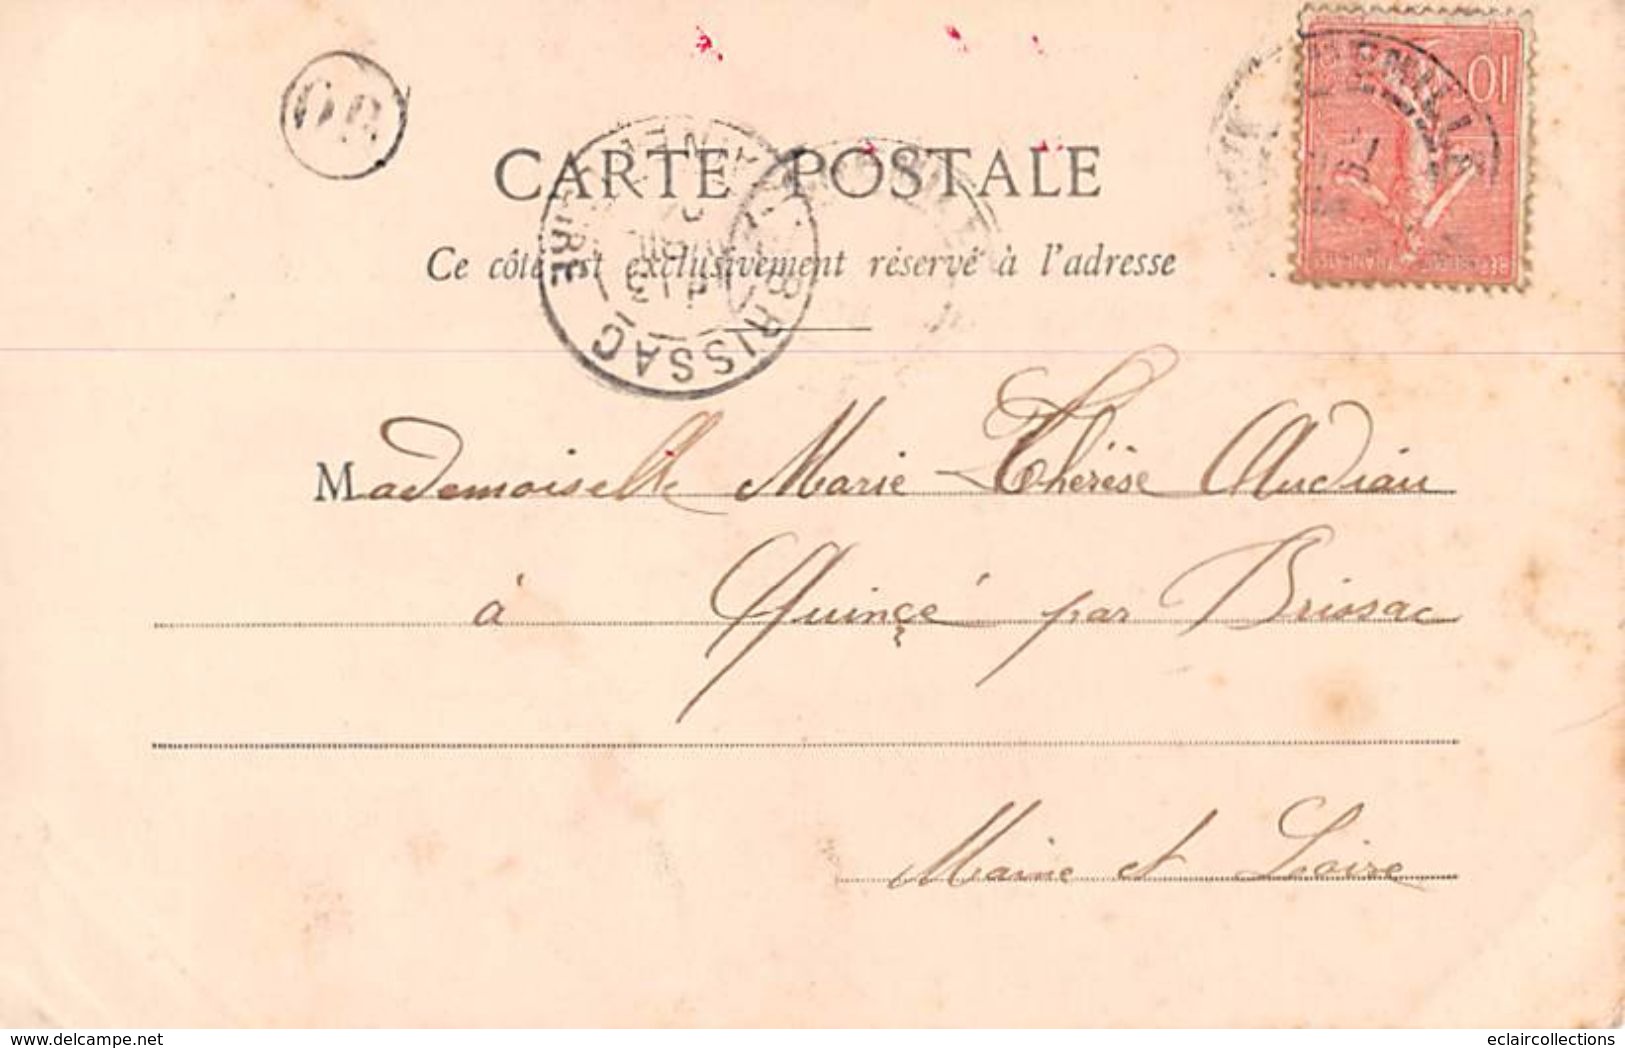 OR
CARTE POSTALE
Ce côté est exclusivement réservé à l'adresse
BRISSAC
10
Mademoiselle Marie Thérèse Audiau
à Quincé par Brissac
Maine et Loire
www.delcampe.net
eclaircollections